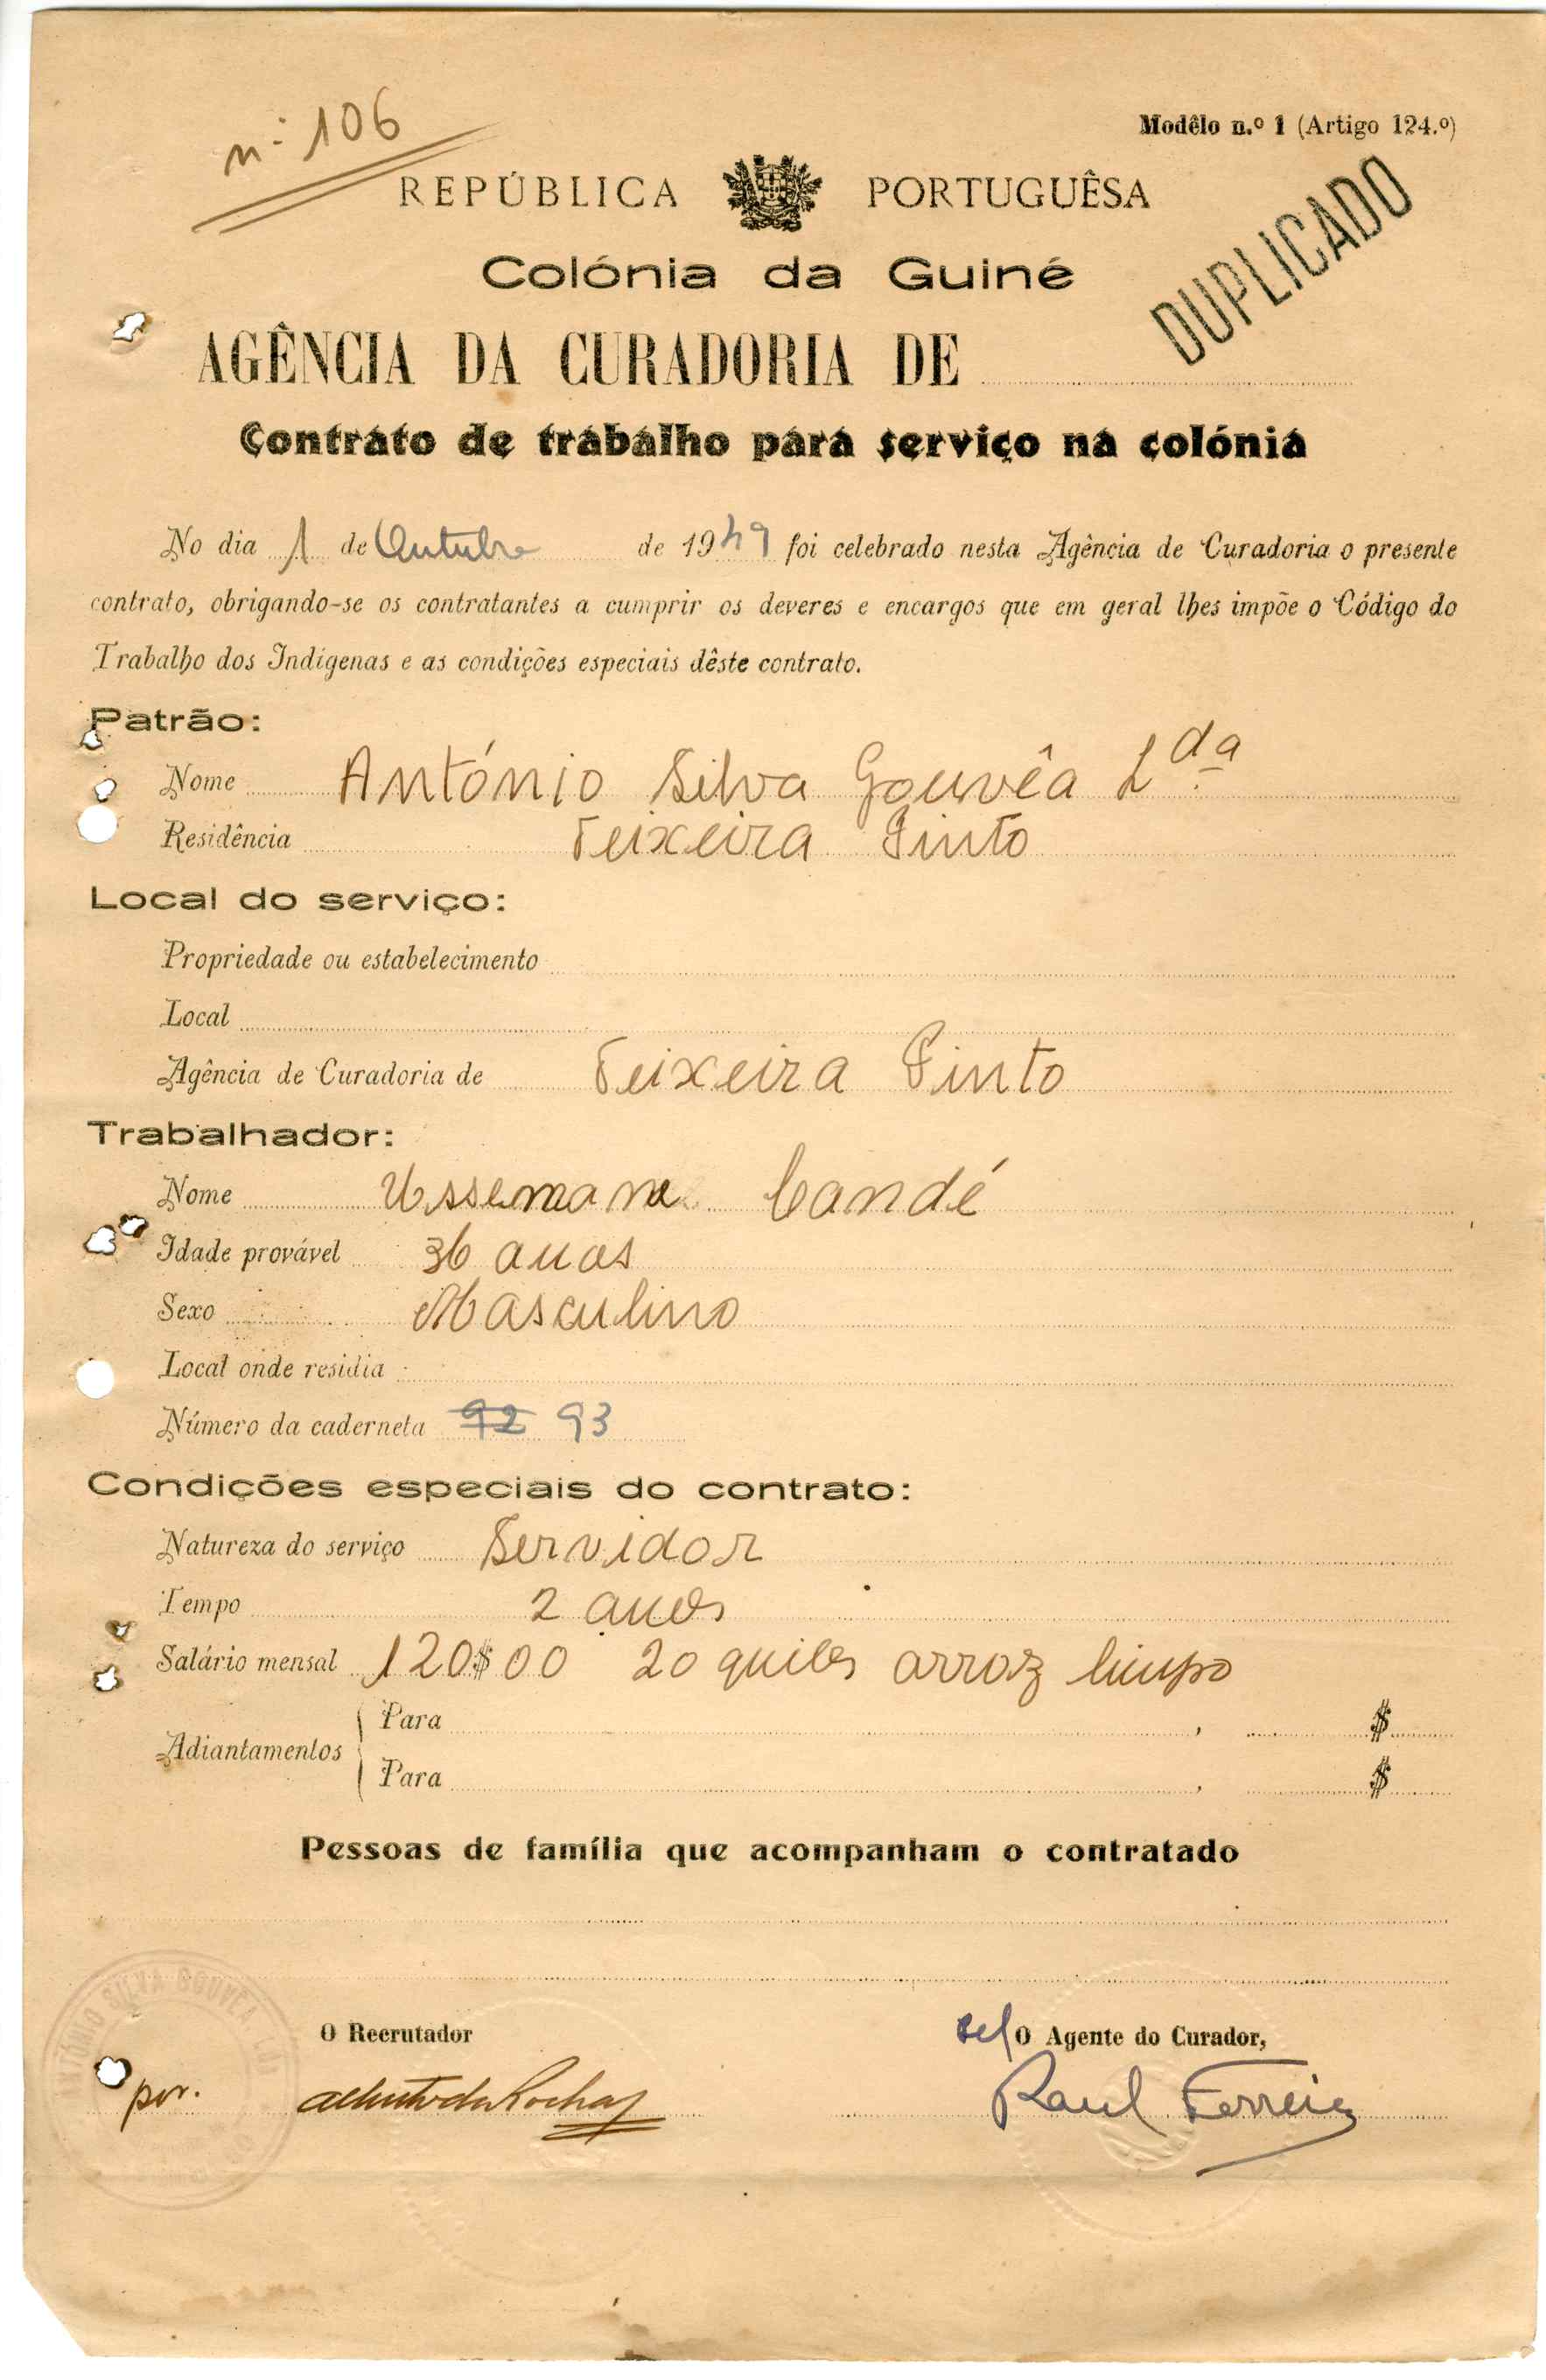 n.º 106
Modêlo n.º 1 (Artigo 124.º)
REPÚBLICA PORTUGUÊSA
DUPLICADO
Colónia da Guiné
AGÊNCIA DA CURADORIA DE
Contrato de trabalho para serviço na colónia
No dia 1 de Outubro de 1949 foi celebrado nesta Agência de Curadoria o presente
contrato, obrigando-se os contratantes a cumprir os deveres e encargos que em geral lhes impõe o Código do
Trabalho dos Indígenas e as condições especiais dêste contrato.
Patrão:
Nome António Silva Gouvêa L.da
Residência Teixeira Pinto
Local do serviço:
Propriedade ou estabelecimento
Local
Agência de Curadoria de Teixeira Pinto
Trabalhador:
Nome Ussemane Candé
Idade provável 36 anos
Sexo Masculino
Local onde residia
Número da caderneta 92 93
Condições especiais do contrato:
Natureza do serviço Servidor
Tempo 2 anos
Salário mensal 120$00 20 quilos arroz limpo
Adiantamentos
Para , $
Para , $
Pessoas de família que acompanham o contratado
ANTÓNIO SILVA GOUVÊA, L.DA
O Recrutador
O Agente do Curador,
por.
Raul Ferreira